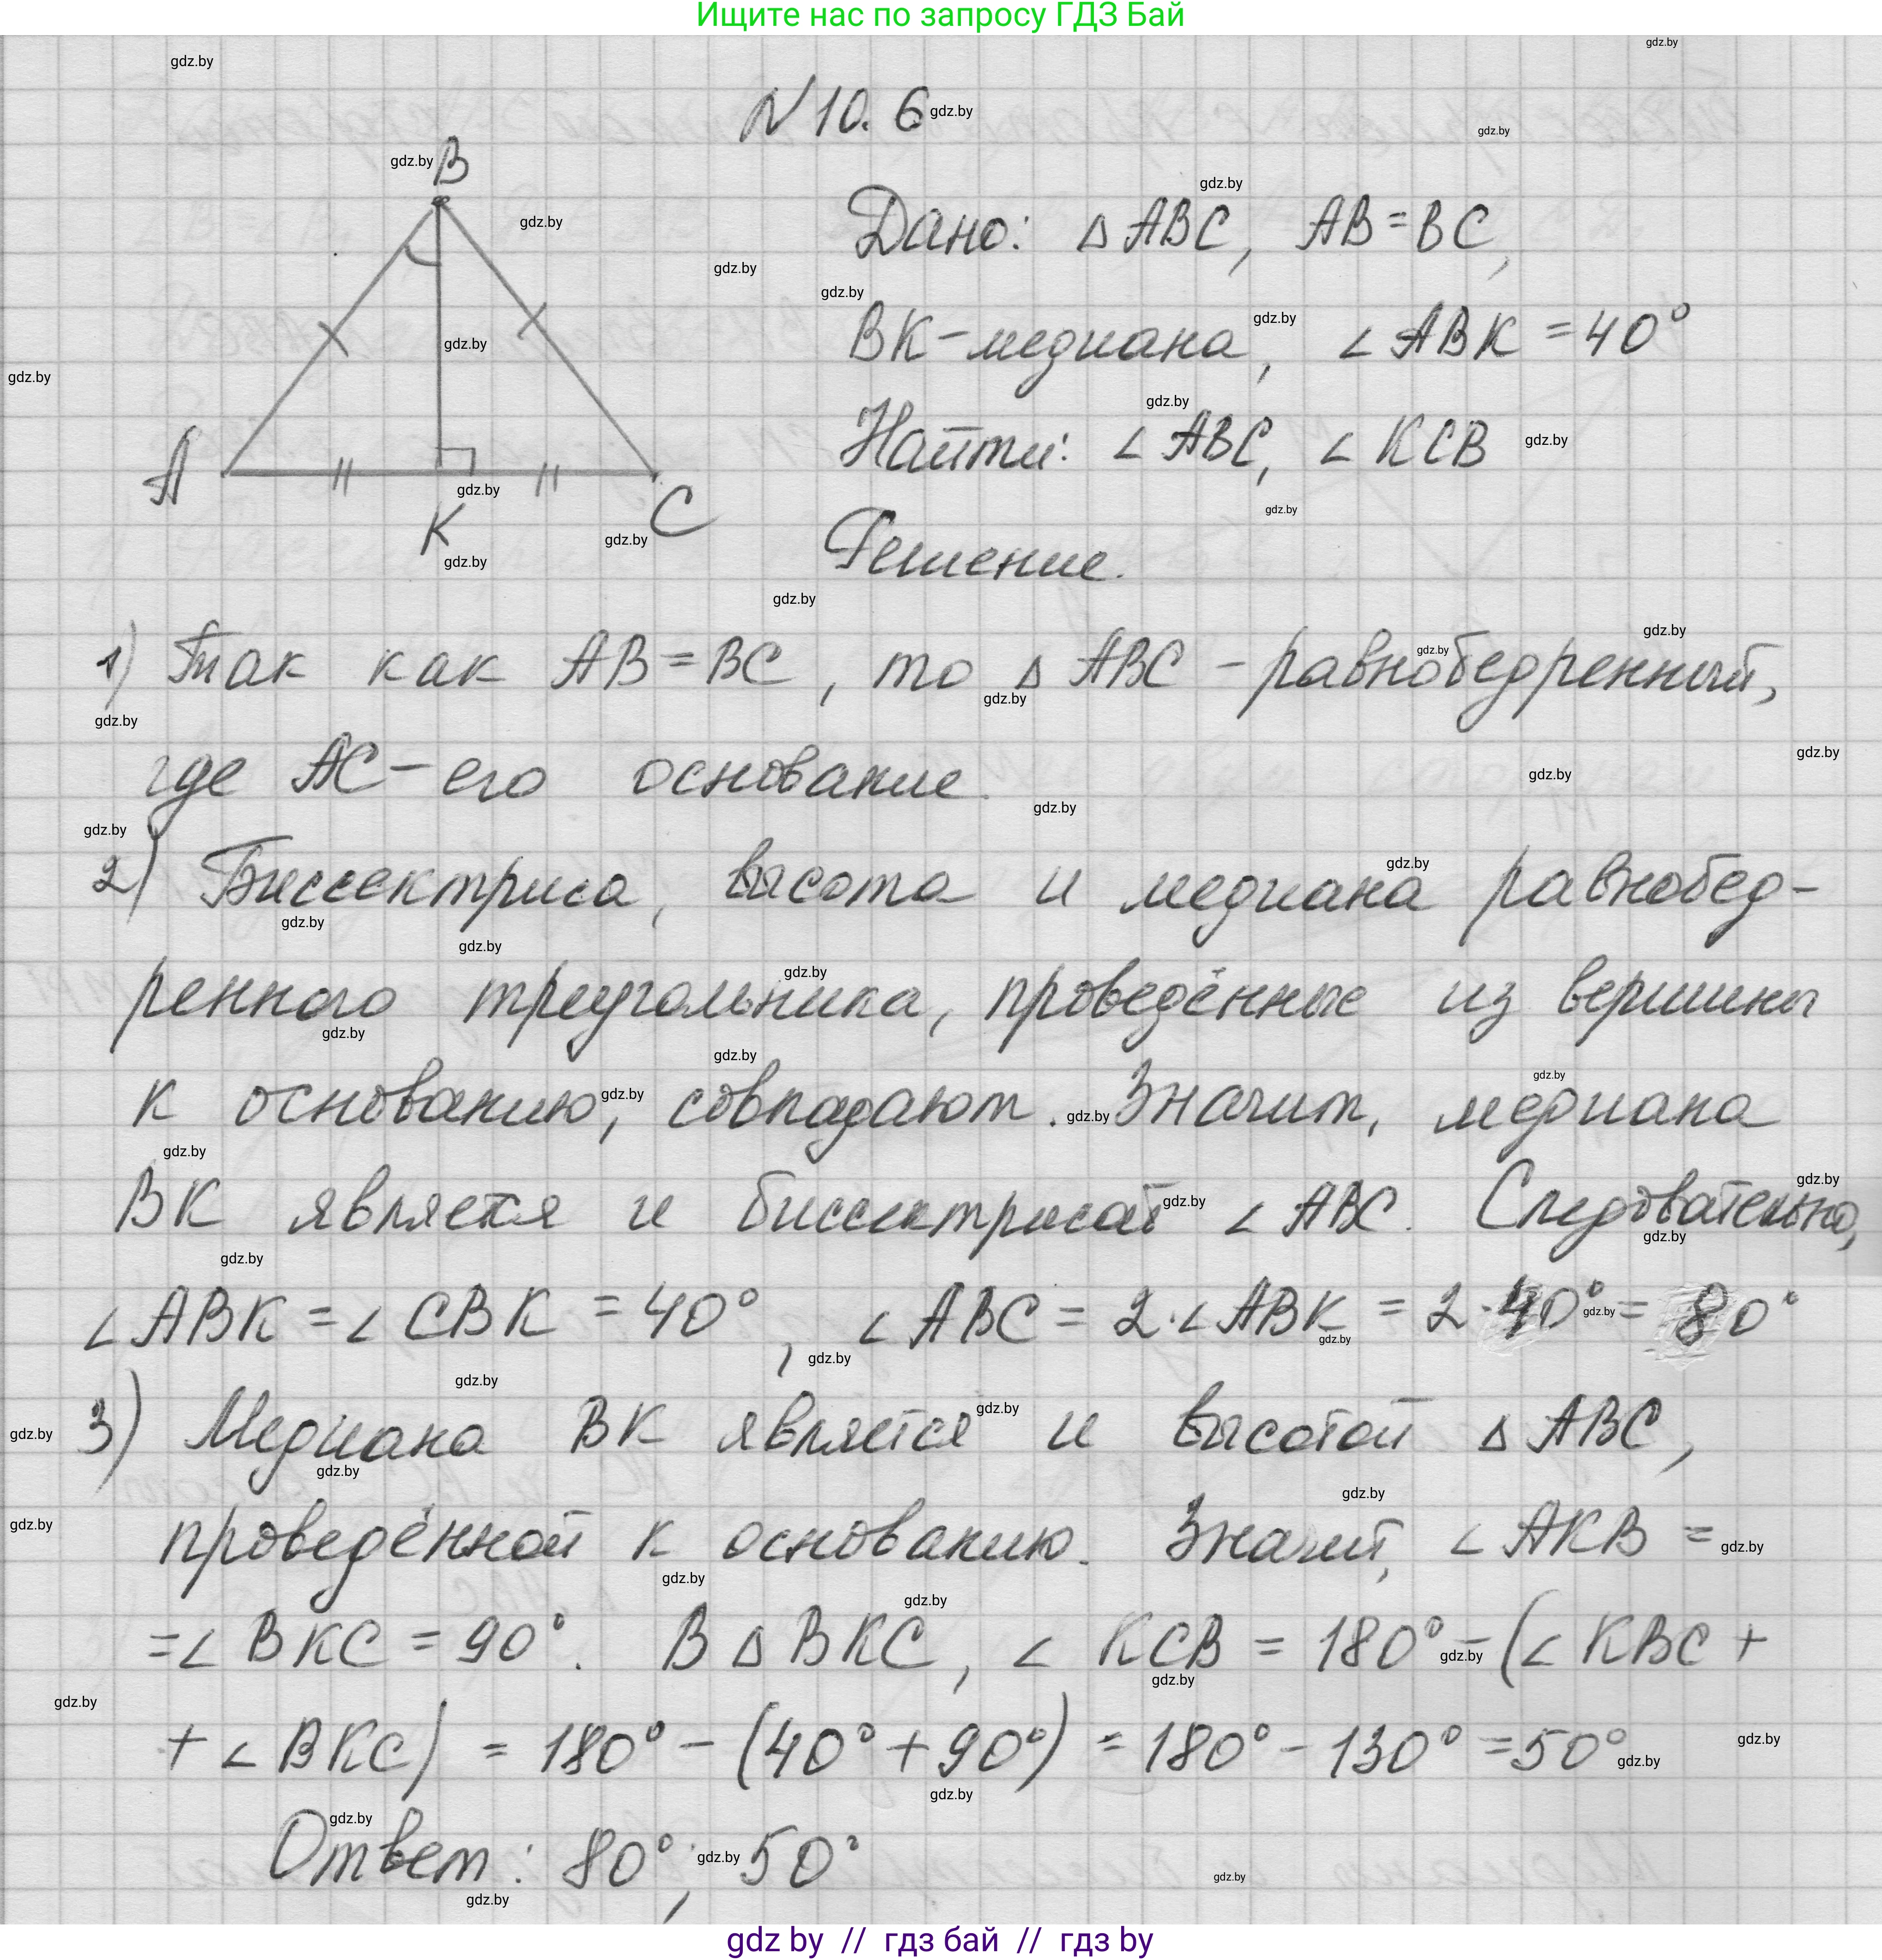 Ищите нас по запросу ГДЗ Бай
№10.6
B
A
K
C
Дано: △ABC, AB=BC,
BK-медиана, ∠ABK=40°
Найти: ∠ABC, ∠KCB
Решение.
1) Так как AB=BC, то △ABC - равнобедренный,
где AC- его основание.
2) Биссектриса, высота и медиана равнобед-
ренного треугольника, проведённые из вершины
к основанию, совпадают. Значит, медиана
BK является и биссектрисой ∠ABC. Следовательно,
∠ABK=∠CBK=40°, ∠ABC=2·∠ABK=2·40°=80°
3) Медиана BK является и высотой △ABC,
проведённой к основанию. Значит, ∠AKB=
=∠BKC=90°. В △BKC, ∠KCB=180°-(∠KBC+
+∠BKC)=180°-(40°+90°)=180°-130°=50°
Ответ: 80°; 50°
gdz by // гдз бай // гдз by